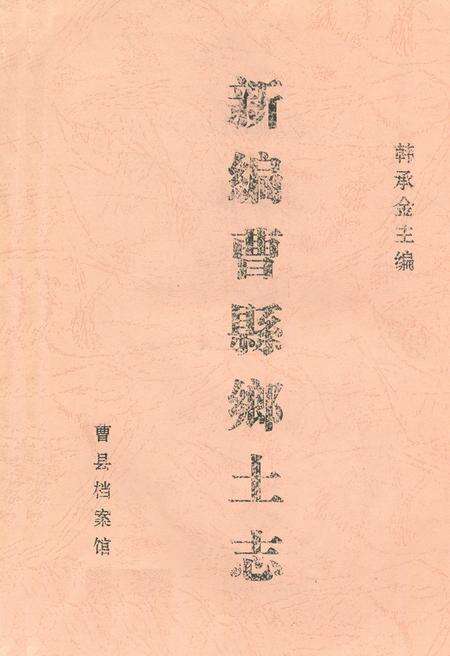 韩承金主编
新编曹縣鄉土志
曹县档案馆